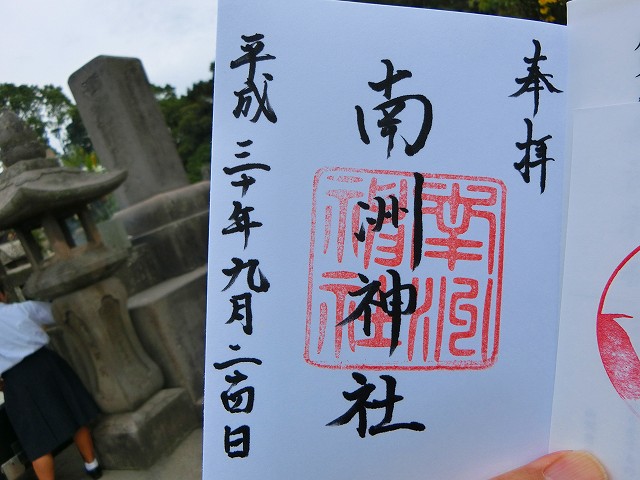 奉拝
南洲神社
南洲神社
平成三十年九月二十四日